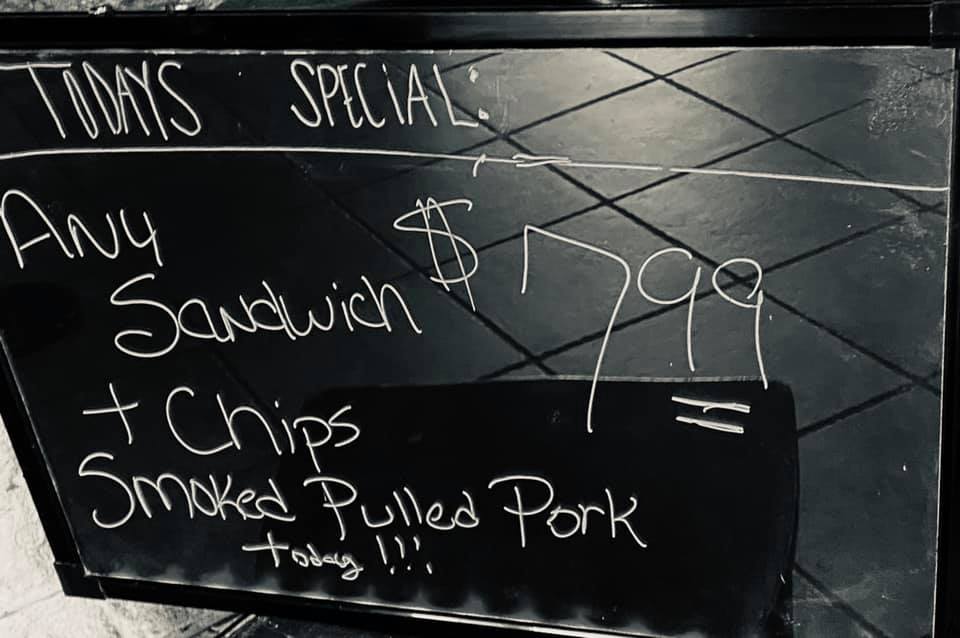 TODAYS SPECIAL:
ANY $799
Sandwich
+ Chips
Smoked Pulled Pork
today!!!